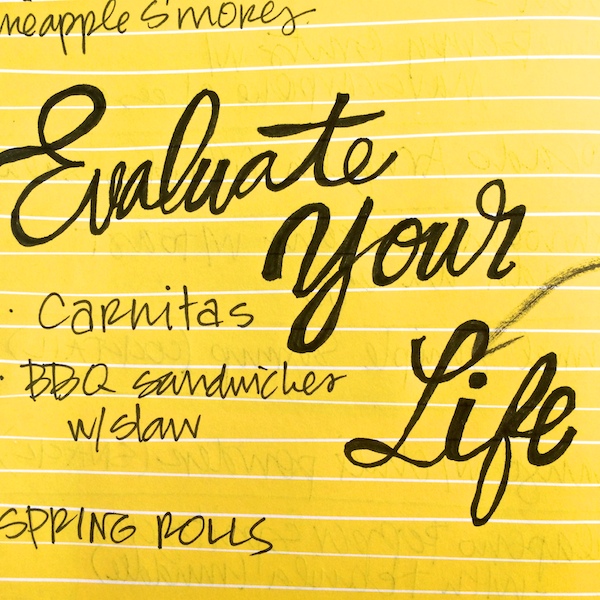 neapple S'mores
Evaluate
Your
Life
· Carnitas
· BBQ sandwiches
w/slaw
SPRING ROLLS